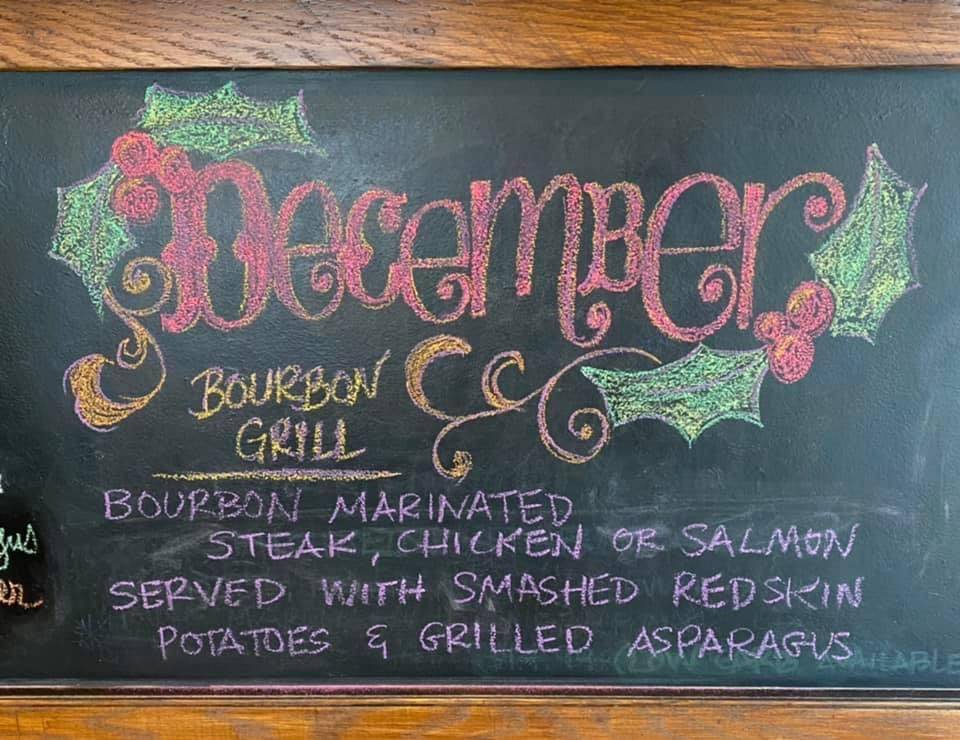 December
BOURBON
GRILL
BOURBON MARINATED
STEAK, CHICKEN OR SALMON
SERVED WITH SMASHED REDSKIN
POTATOES & GRILLED ASPARAGUS
(LOW CARB AVAILABLE